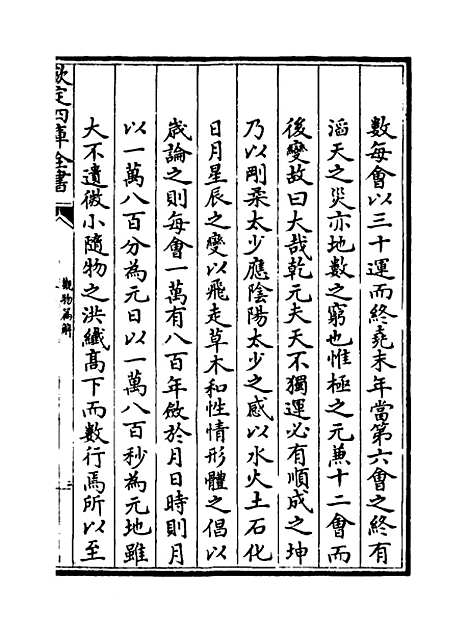 數每會以三十運而終堯末年當第六會之終有
滔天之災亦地數之窮也惟極之元兼十二會而
後變故曰大哉乾元夫天不獨運必有順成之坤
乃以剛柔太少應陰陽太少之感以水火土石化
日月星辰之變以飛走草木和性情形體之倡以
歲論之則每會一萬有八百年斂於月日時則月
以一萬八百分為元日以一萬八百秒為元地雖
大不遺微小隨物之洪纖髙下而數行焉所以至
欽定四庫全書
觀物篇解
三